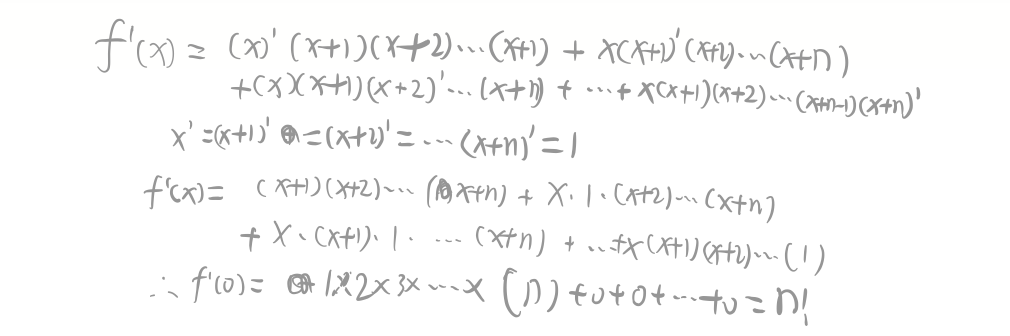 f'(x) = (x)' (x+1)(x+2)...(x+1) + x(x+1)'(x+2)...(x+n)
+(x)(x+1)(x+2)'...(x+n) + ...+ x(x+1)(x+2)...(x+n-1)(x+n)'
x' =(x+1)' =(x+2)' =...(x+n)' = 1
f'(x)= (x+1)(x+2)...(x+n) + x·1·(x+2)...(x+n)
+ x·(x+1)·1· ...(x+n) + ...+x(x+1)(x+2)...(1)
∴ f'(0)= 1×2×3×...×(n)+0+0+...+0=n!